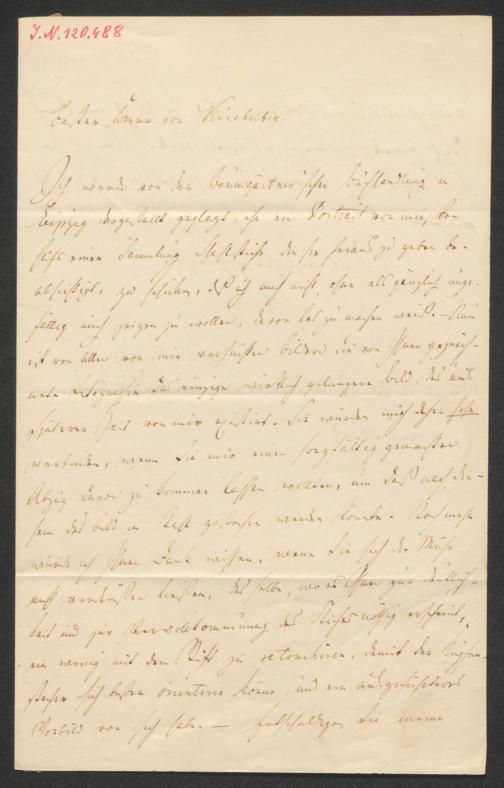 J.N. 120.488
Bester Herr von Kriehuber.
Ich werde von der Baumgärtner'schen Buchhandlung in
Leipzig dergestallt geplagt, ihr ein Portrait von mir, be-
hufs einer Sammlung Stahlstiche die sie heraus zu geben be-
absichtigt, zu schicken, daß ich mich nicht ohne als gänzlich unge-
fällig mich zeigen zu wollen, davon los zu machen weiß. – Nun
ist von allen von mir versuchten Bildern die von Ihnen gezeich-
nete Litografie das einzige wirklich gelungene Bild, das aus
späterer Zeit von mir existirt. Sie würden mich daher sehr
verbinden, wenn Sie mir einen sorgfältig gemachten
Abzug davon zu kommen lassen wollten, um daß nach die-
sem das Bild in Stahl gestochen werden könnte. Noch mehr
würde ich Ihnen Dank wissen, wenn Sie sich die Mühe
nicht verdrießen ließen, dasselbe, wo es Ihnen zur Deutlich-
keit und zur Vervollkommnung des Stiches nöthig erscheint,
ein wenig mit dem Stift zu retouchiren, damit der Kupfer-
stecher sich besser orientiren könne, und ein ausgeführteres
Vorbild vor sich habe – Entschuldigen Sie meine